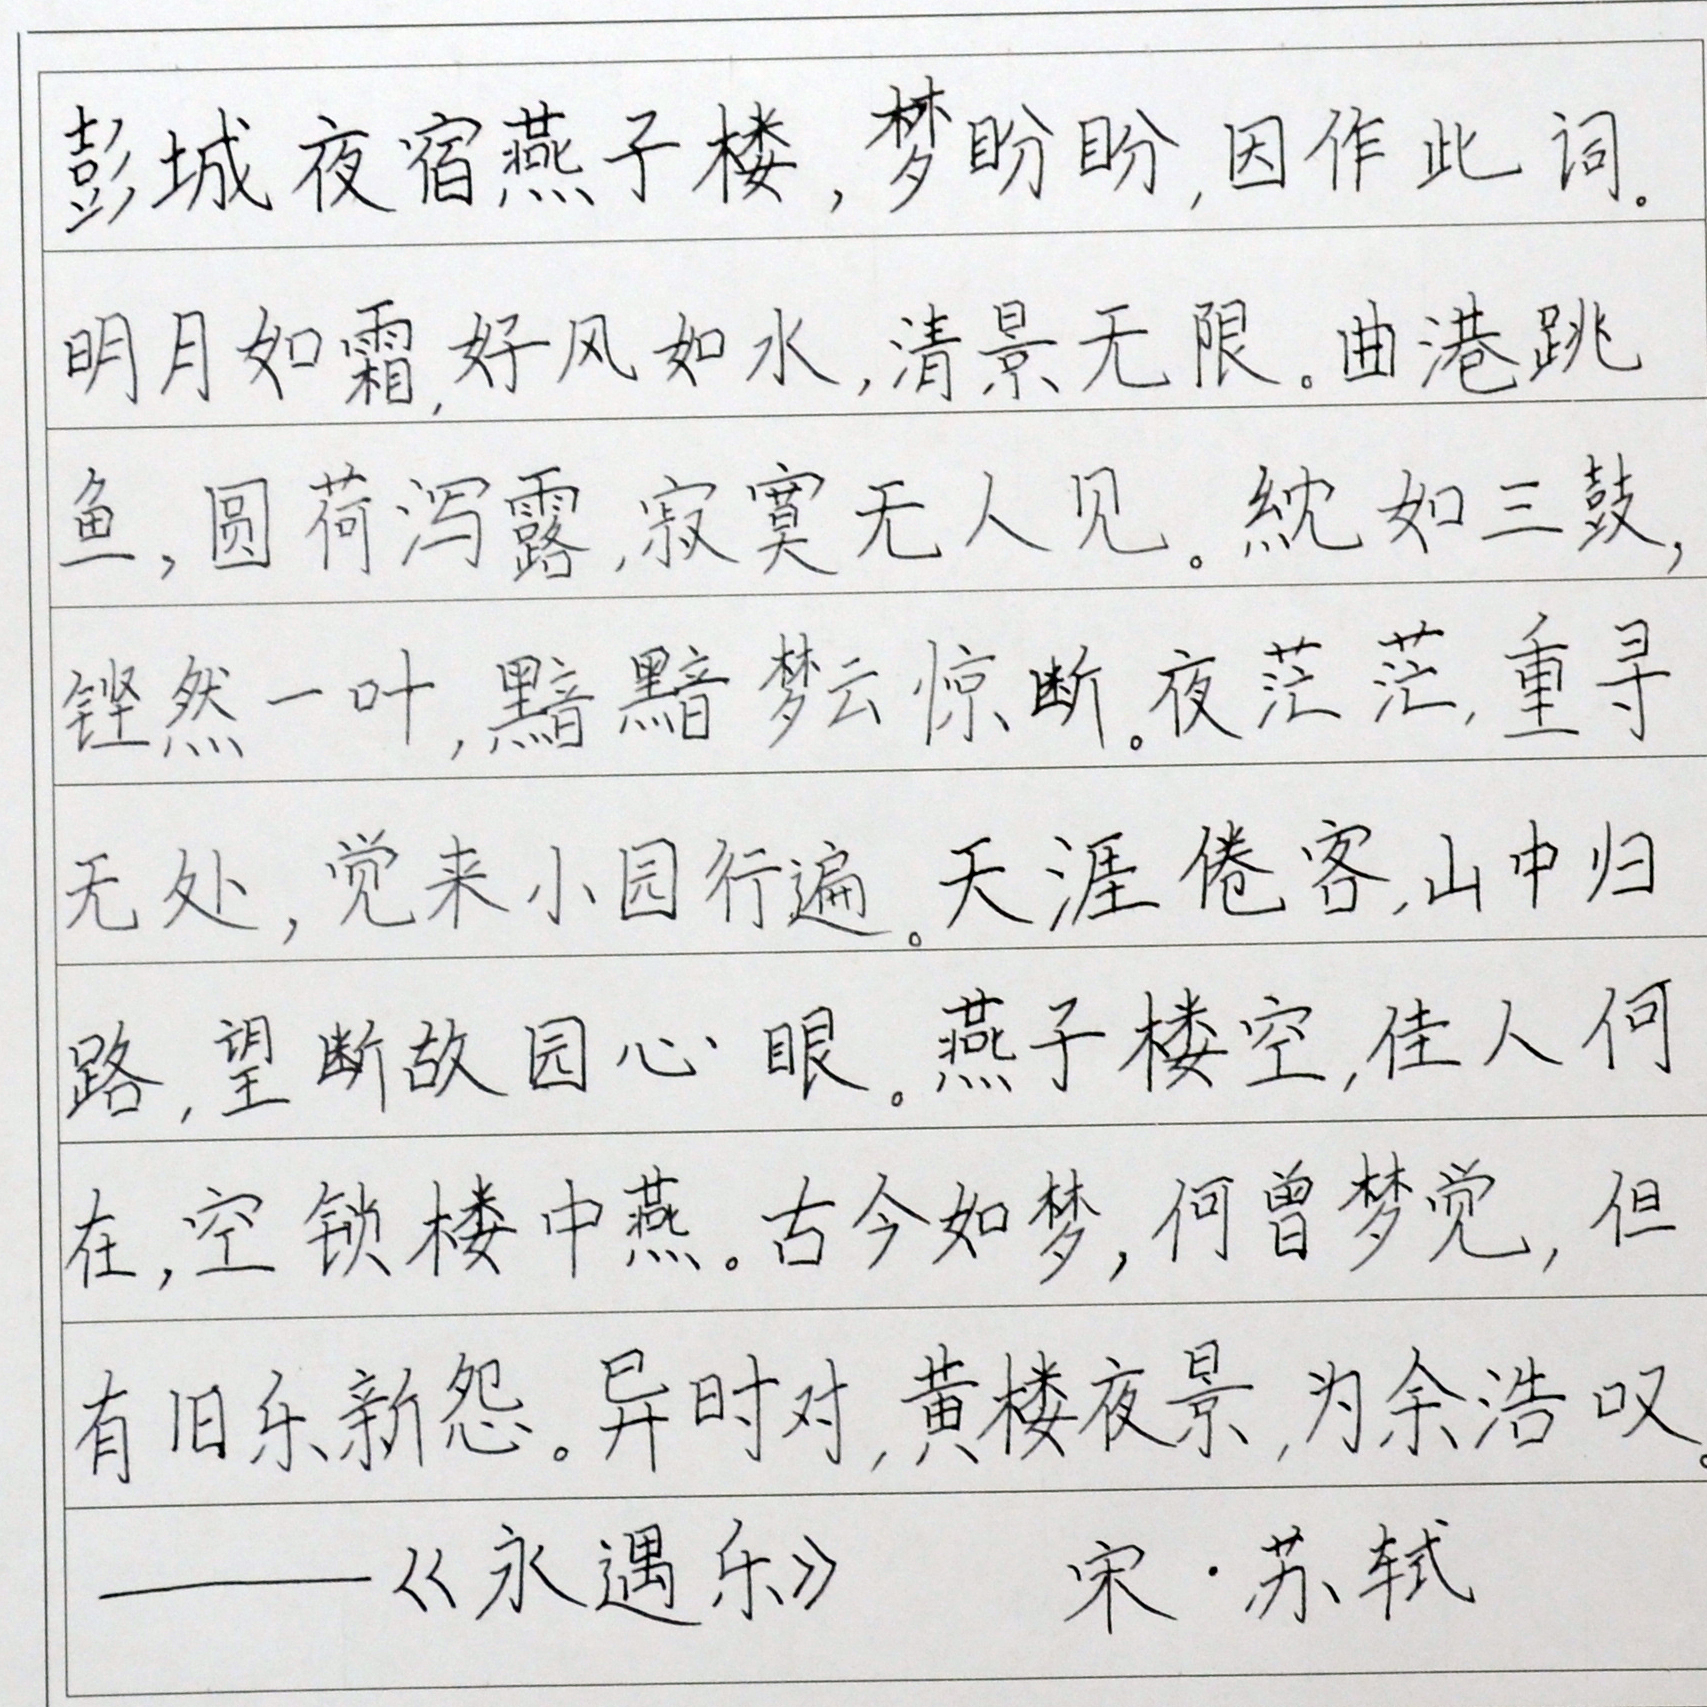 彭城夜宿燕子楼,梦盼盼,因作此词。
明月如霜,好风如水,清景无限。曲港跳
鱼,圆荷泻露,寂寞无人见。紞如三鼓,
铿然一叶,黯黯梦云惊断。夜茫茫,重寻
无处,觉来小园行遍。天涯倦客,山中归
路,望断故园心眼。燕子楼空,佳人何
在,空锁楼中燕。古今如梦,何曾梦觉,但
有旧乐新怨。异时对,黄楼夜景,为余浩叹。
——《永遇乐》 宋·苏轼